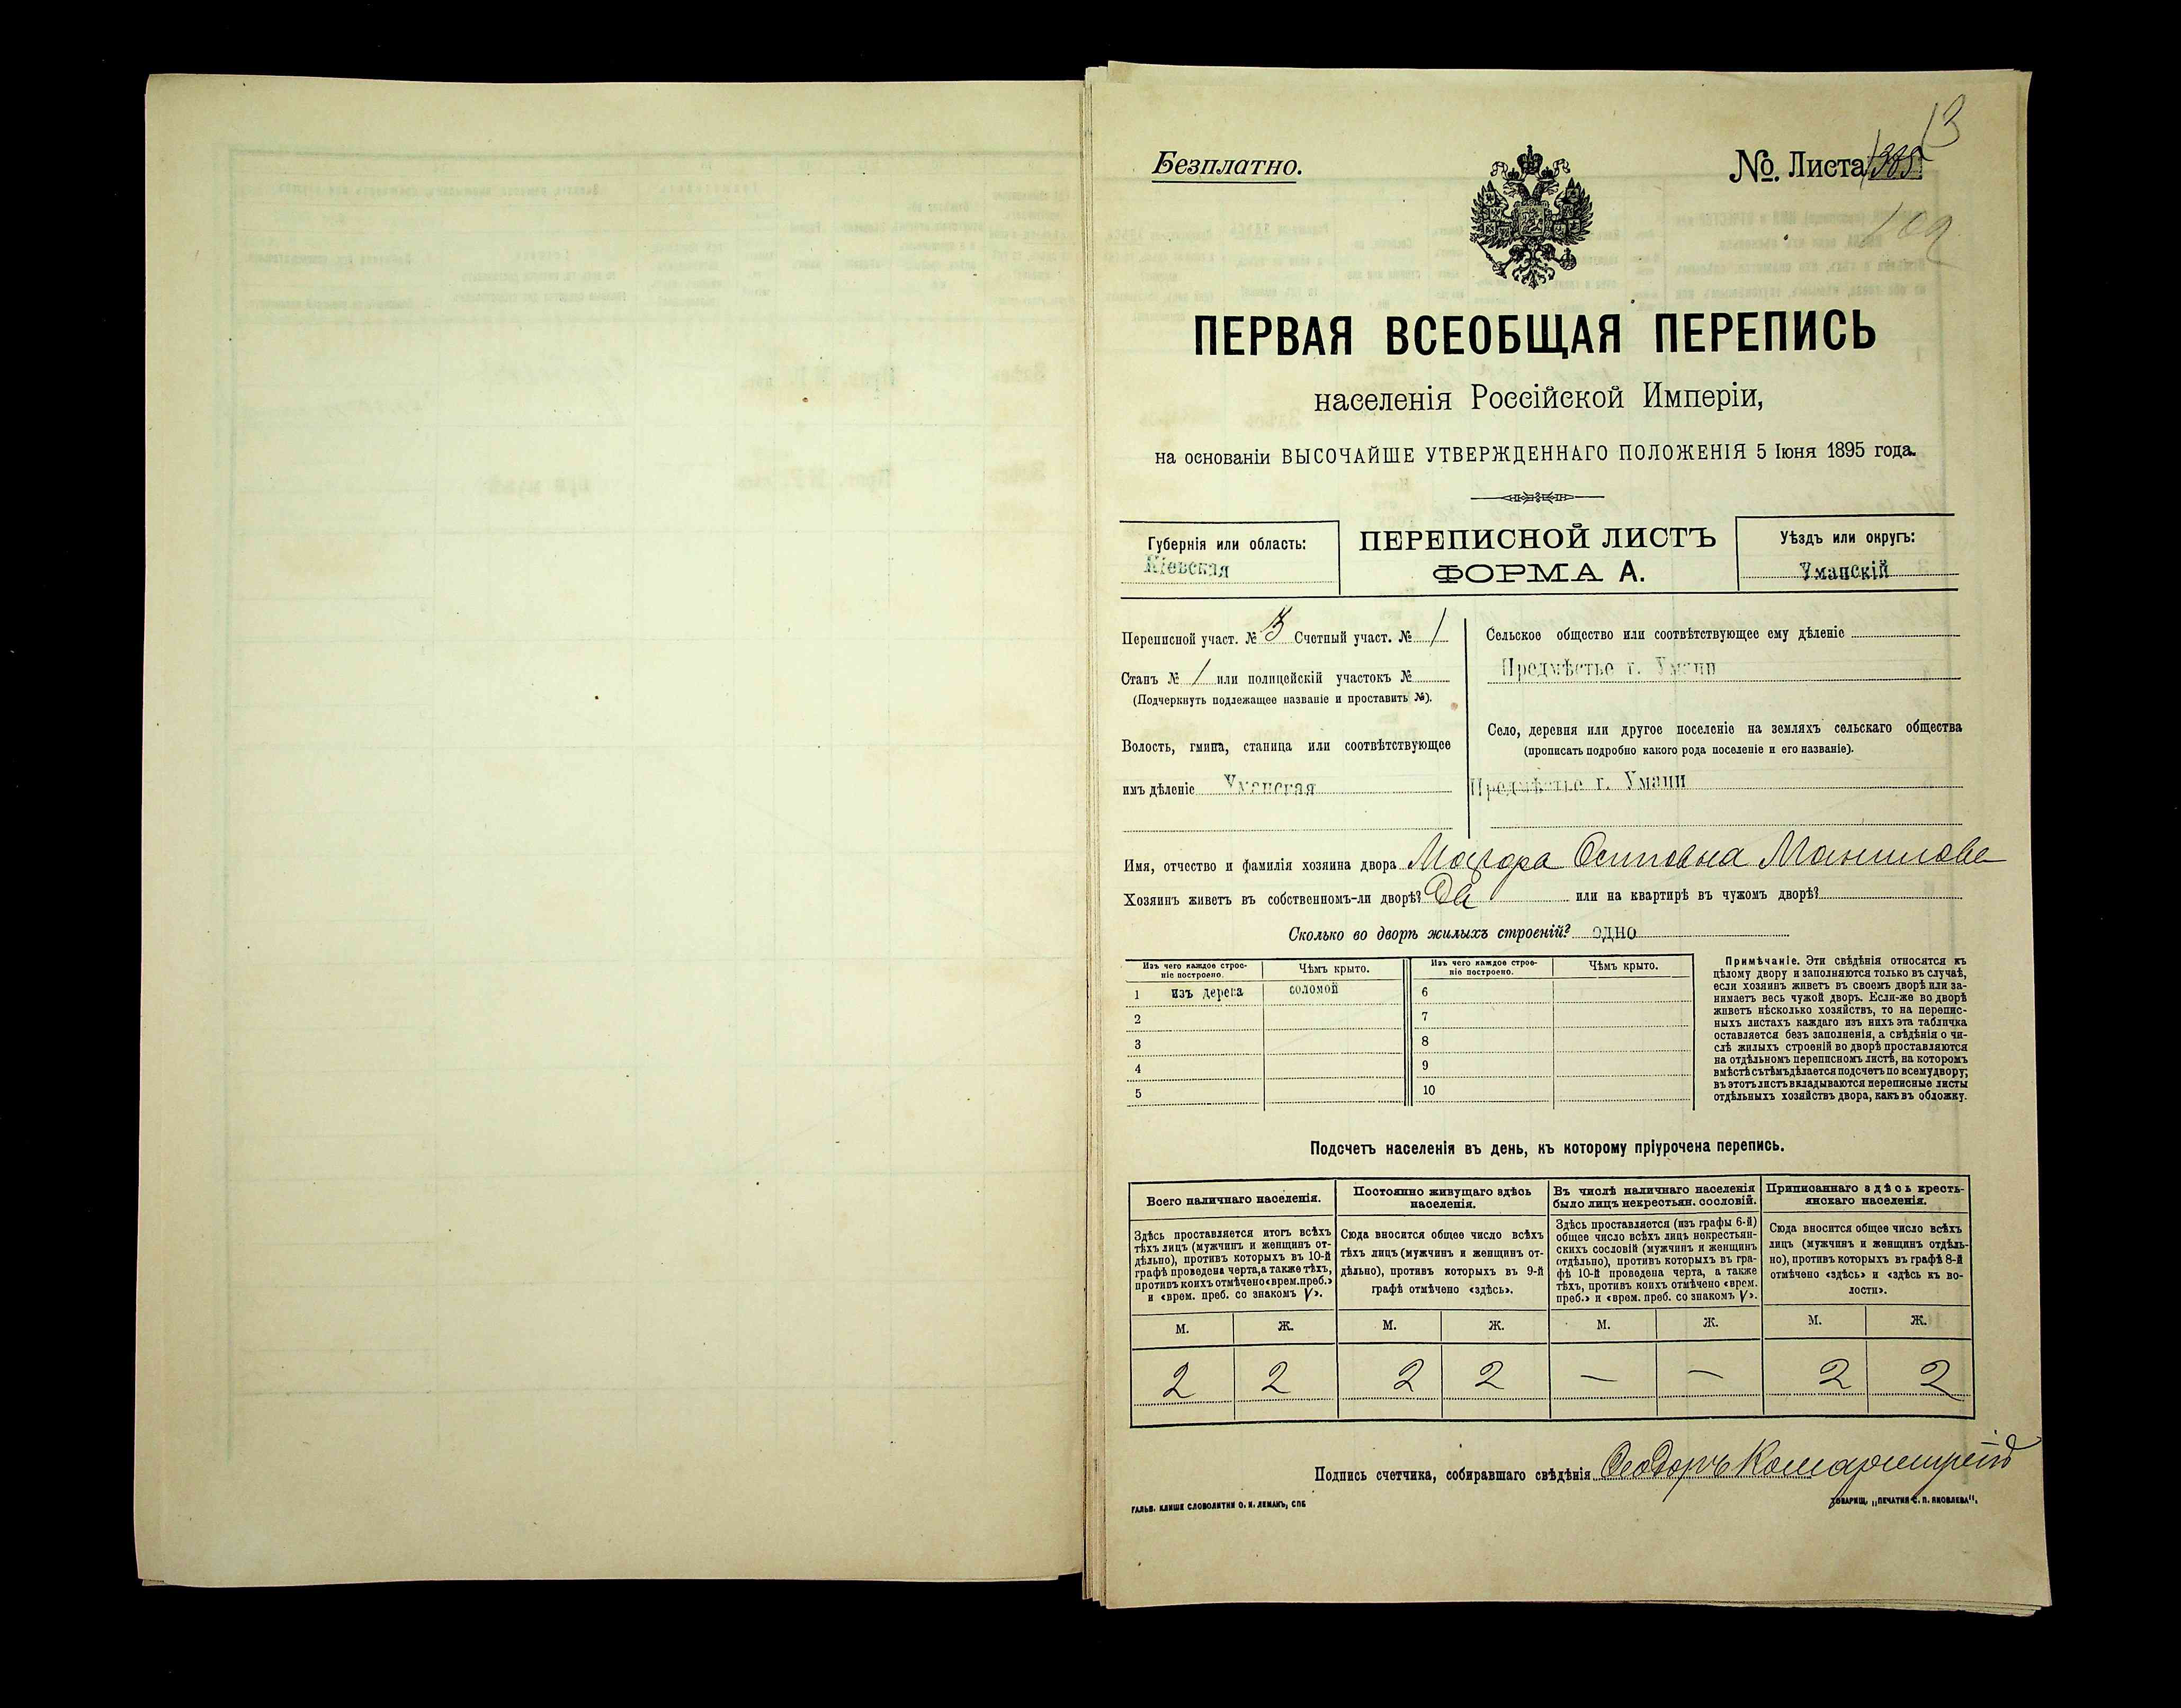 13
Безплатно.
№. Листа
109
ПЕРВАЯ ВСЕОБЩАЯ ПЕРЕПИСЬ
населенія Россійской Имперіи,
на основаніи ВЫСОЧАЙШЕ УТВЕРЖДЕННАГО ПОЛОЖЕНІЯ 5 Іюня 1895 года.
Губернія или область:
Кіевская
ПЕРЕПИСНОЙ ЛИСТЪ
ФОРМА А.
Уѣздъ или округъ:
Уманскій
Переписной участ. № Счетный участ. № 1
Станъ № 1 или полицейскій участокъ №
(Подчеркнуть подлежащее названіе и проставить №).
Волость, гмина, станица или соотвѣтствующее
имъ дѣленіе Уманская
Сельское общество или соотвѣтствующее ему дѣленіе
Предмѣстье г. Умани
Село, деревня или другое поселеніе на земляхъ сельскаго общества
(прописать подробно какого рода поселеніе и его названіе).
Предмѣстье г. Умани
Имя, отчество и фамилія хозяина двора Осиповна
Хозяинъ живетъ въ собственномъ-ли дворѣ? Да или на квартирѣ въ чужомъ дворѣ?
Сколько во дворѣ жилыхъ строеній? одно
Изъ чего каждое строе-
ніе построено.
Чѣмъ крыто.
Изъ чего каждое строе-
ніе построено.
Чѣмъ крыто.
1 изъ дерева соломой 6
2 7
3 8
4 9
5 10
Примѣчаніе. Эти свѣдѣнія относятся къ
цѣлому двору и заполняются только въ случаѣ,
если хозяинъ живетъ въ своемъ дворѣ или за-
нимаетъ весь чужой дворъ. Если-же во дворѣ
живетъ нѣсколько хозяйствъ, то на перепис-
ныхъ листахъ каждаго изъ нихъ эта табличка
оставляется безъ заполненія, а свѣдѣнія о чи-
слѣ жилыхъ строеній во дворѣ проставляются
на отдѣльномъ переписномъ листѣ, на которомъ
вмѣстѣ съ тѣмъ дѣлается подсчетъ по всему двору;
въ этотъ листъ вкладываются переписные листы
отдѣльныхъ хозяйствъ двора, какъ въ обложку.
Подсчетъ населенія въ день, къ которому пріурочена перепись.
Всего наличнаго населенія.
Здѣсь проставляется итогъ всѣхъ
тѣхъ лицъ (мужчинъ и женщинъ от-
дѣльно), противъ которыхъ въ 10-й
графѣ проведена черта, а также тѣхъ,
противъ коихъ отмѣчено «врем. преб.»
и «врем. преб. со знакомъ V».
Постоянно живущаго здѣсь
населенія.
Сюда вносится общее число всѣхъ
тѣхъ лицъ (мужчинъ и женщинъ от-
дѣльно), противъ которыхъ въ 9-й
графѣ отмѣчено «здѣсь».
Въ числѣ наличнаго населенія
было лицъ некрестьян. сословій.
Здѣсь проставляется (изъ графы 6-й)
общее число всѣхъ лицъ некрестьян-
скихъ сословій (мужчинъ и женщинъ
отдѣльно), противъ которыхъ въ гра-
фѣ 10-й проведена черта, а также
тѣхъ, противъ коихъ отмѣчено «врем.
преб.» и «врем. преб. со знакомъ V».
Приписаннаго здѣсь кресть-
янскаго населенія.
Сюда вносится общее число всѣхъ
лицъ (мужчинъ и женщинъ отдѣль-
но), противъ которыхъ въ графѣ 8-й
отмѣчено «здѣсь» и «здѣсь въ во-
лости».
М. Ж. М. Ж. М. Ж. М. Ж.
2 2 2 2 — — 2 2
Подпись счетчика, собиравшаго свѣдѣнія Ѳеодоръ
ГАЛЬВ. КЛИШЕ СЛОВОЛИТНИ О. И. ЛЕМАНЪ, СПБ
ТОВАРИЩ. „ПЕЧАТНЯ С. П. ЯКОВЛЕВА“.